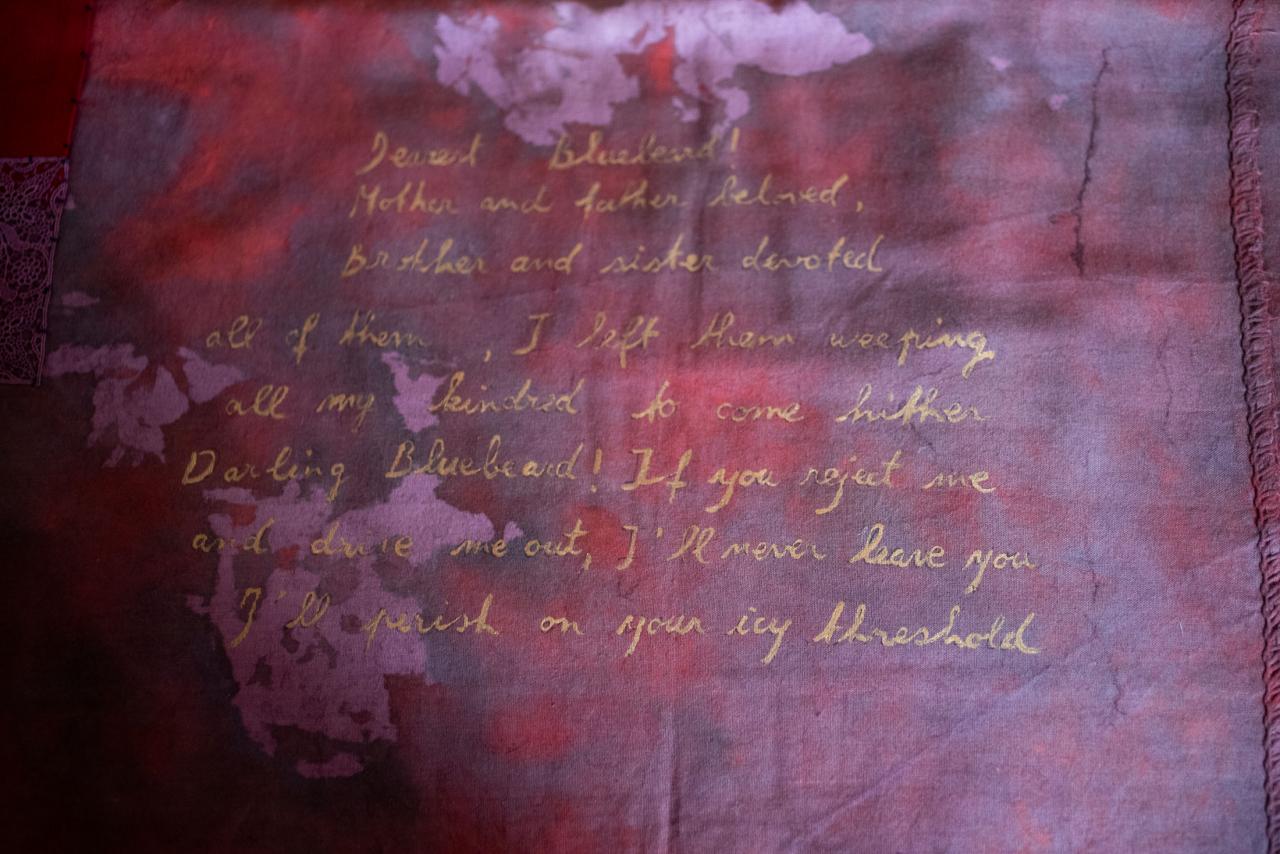 Dearest Bluebeard!
Mother and father beloved,
Brother and sister devoted
all of them , I left them weeping
all my kindred to come hither
Darling Bluebeard! If you reject me
and drive me out, I'll never leave you
I'll perish on your icy threshold